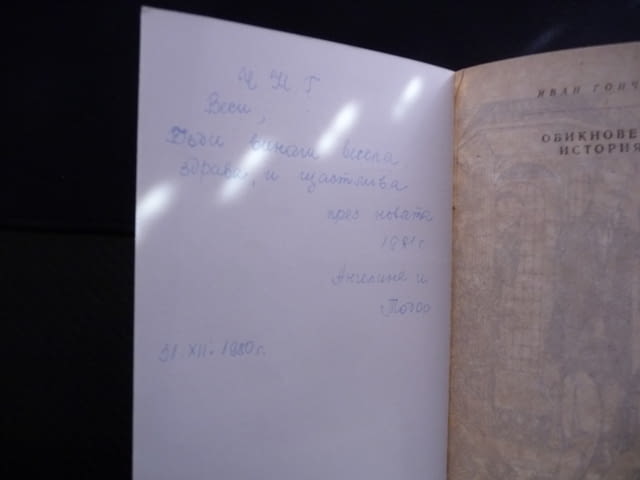 Ч Н Г
Веси,
Бъди винаги весела
здрава, и щастлива
през новата
1981 г.
Ангелина и
31. XII. 1980 г.
ИВАН ГОНЧ
ОБИКНОВЕ
ИСТОРИЯ